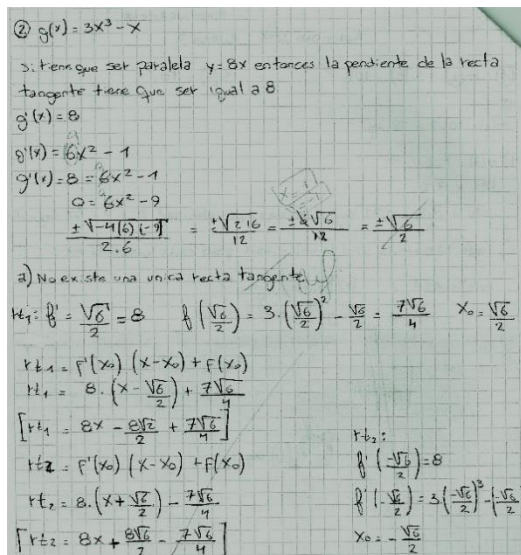 ② g(x) = 3x³ - x
Si tiene que ser paralela y=8x entonces la pendiente de la recta
tangente tiene que ser igual a 8
g'(x) = 8
g'(x) = 6x² - 1
g'(x) = 8 = 6x² - 1
0 = 6x² - 9
±√-4(6)(-9) / 2.6 = ±√216 / 12 = ±6√6 / 12 = ±√6 / 2
a) No existe una unica recta tangente
rt₁: f' = √6/2 = 8 f(√6/2) = 3.(√6/2)² - √6/2 = 7√6/4 x₀ = √6/2
rt₁ = f'(x₀) (x-x₀) + f(x₀)
rt₁ = 8.(x - √6/2) + 7√6/4
[rt₁ = 8x - 8√2/2 + 7√6/4]
rt₂ = f'(x₀) (x-x₀) + f(x₀)
rt₂ = 8.(x + √6/2) - 7√6/4
[rt₂ = 8x + 8√6/2 - 7√6/4]
rt₂:
f'(-√6/2) = 8
f'(-√6/2) = 3(-√6/2)³ - (-√6/2
x₀ = -√6/2